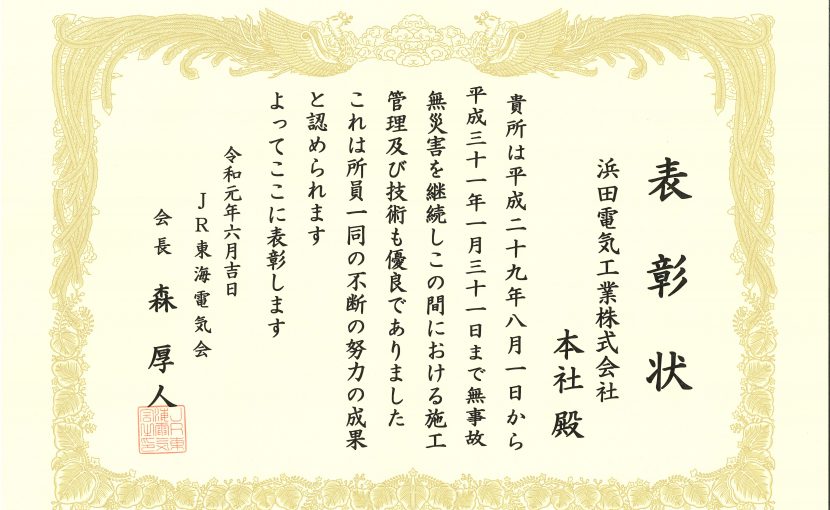 表彰状
浜田電気工業株式会社
本社殿
貴所は平成二十九年八月一日から
平成三十一年一月三十一日まで無事故
無災害を継続しこの間における施工
管理及び技術も優良でありました
これは所員一同の不断の努力の成果
と認められます
よってここに表彰します
令和元年六月吉日
JR東海電気会
会長 森厚人